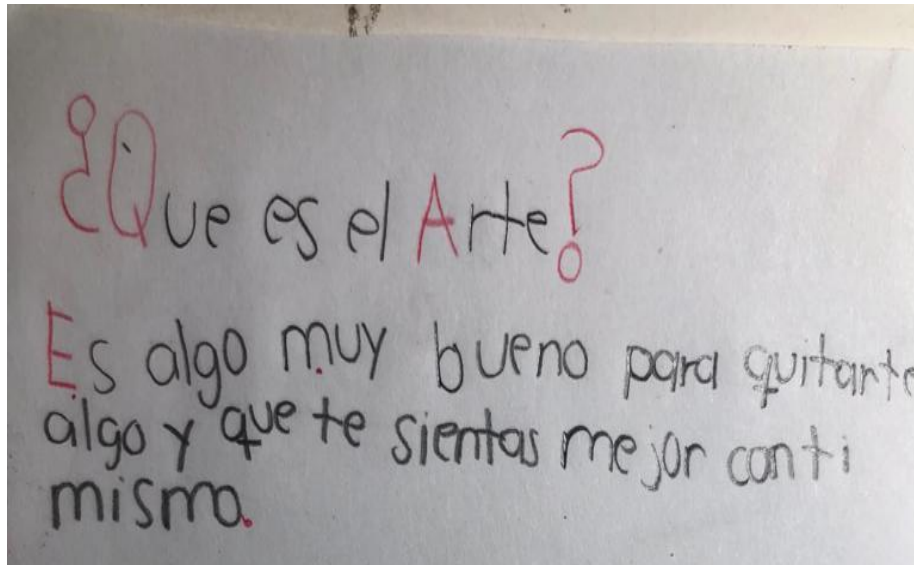 ¿Que es el Arte?
Es algo muy bueno para quitarte
algo y que te sientas mejor con ti
mismo.